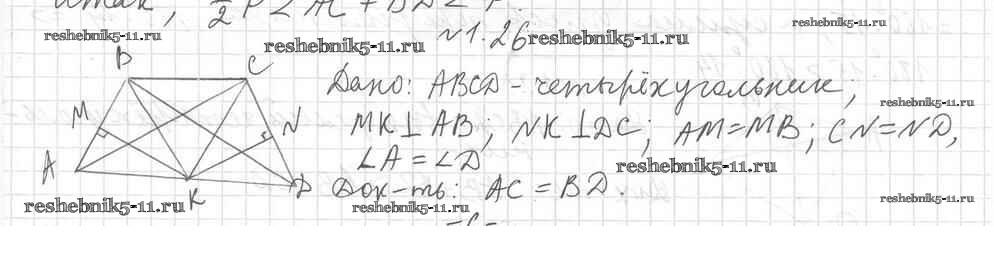 Итак, 1/2 P < AC + BD < P.
reshebnik5-11.ru
reshebnik5-11.ru
№1.26
reshebnik5-11.ru
reshebnik5-11.ru
B
C
M
N
A
K
D
Дано: ABCD - четырёхугольник;
reshebnik5-11.ru
MK⊥AB; NK⊥DC; AM=MB; CN=ND,
∠A=∠D
reshebnik5-11.ru
Док-ть: AC=BD
reshebnik5-11.ru
reshebnik5-11.ru
reshebnik5-11.ru